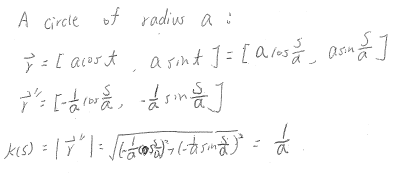 A circle of radius a :
r⃗ = [ a cos t , a sin t ] = [ a cos s/a , a sin s/a ]
r⃗'' = [ -1/a cos s/a , -1/a sin s/a ]
k(s) = | r⃗'' | = √((-1/a cos s/a)² + (-1/a sin s/a)²) = 1/a